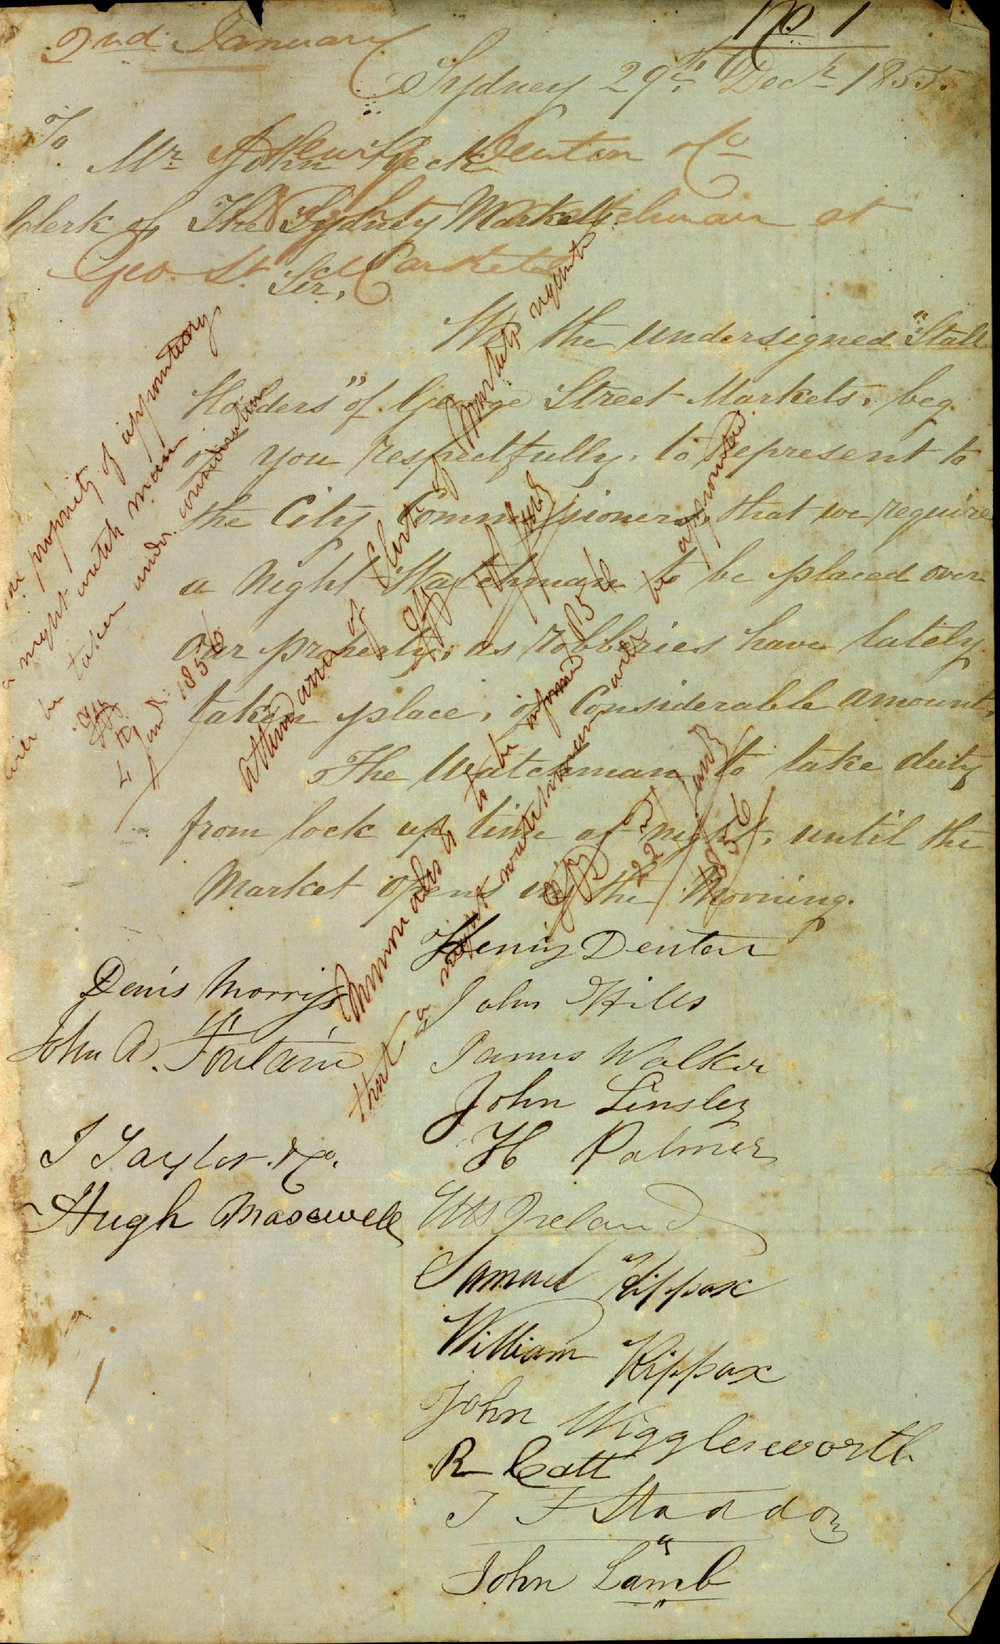 No 1
2nd January
Sydney 29th Decr 1855.
To
Mr John Heck
Denton & Co
Clerk of The Sydney Markets
watchman at
Geo. St. Markets
Sir,
We the undersigned "Stall
Holders" of George Street Markets, beg
of you respectfully, to represent to
the City Commissioners, that we require
a Night Watchman to be placed over
our property, as robberies have lately
taken place, of Considerable amount,
The Watchman to take duty
from lock up time at night, until the
Market opens in the Morning.
Henry Denton
Denis Morriss
John Hills
John A. Fontain
James Walker
John Linsley
J Taylor & Co.
H Palmer
Hugh Maxwell
Wm Ireland
Samuel Kippax
William Kippax
John Wigglesworth
R Catt
T F Staddon
John Lamb
propriety of appointing
a night watch man
will be taken under consideration
4 Jany 1856
attendance of Clerk of Markets requested
Memorialists to be informed
that a night watchman will be appointed
22nd Jany
1856